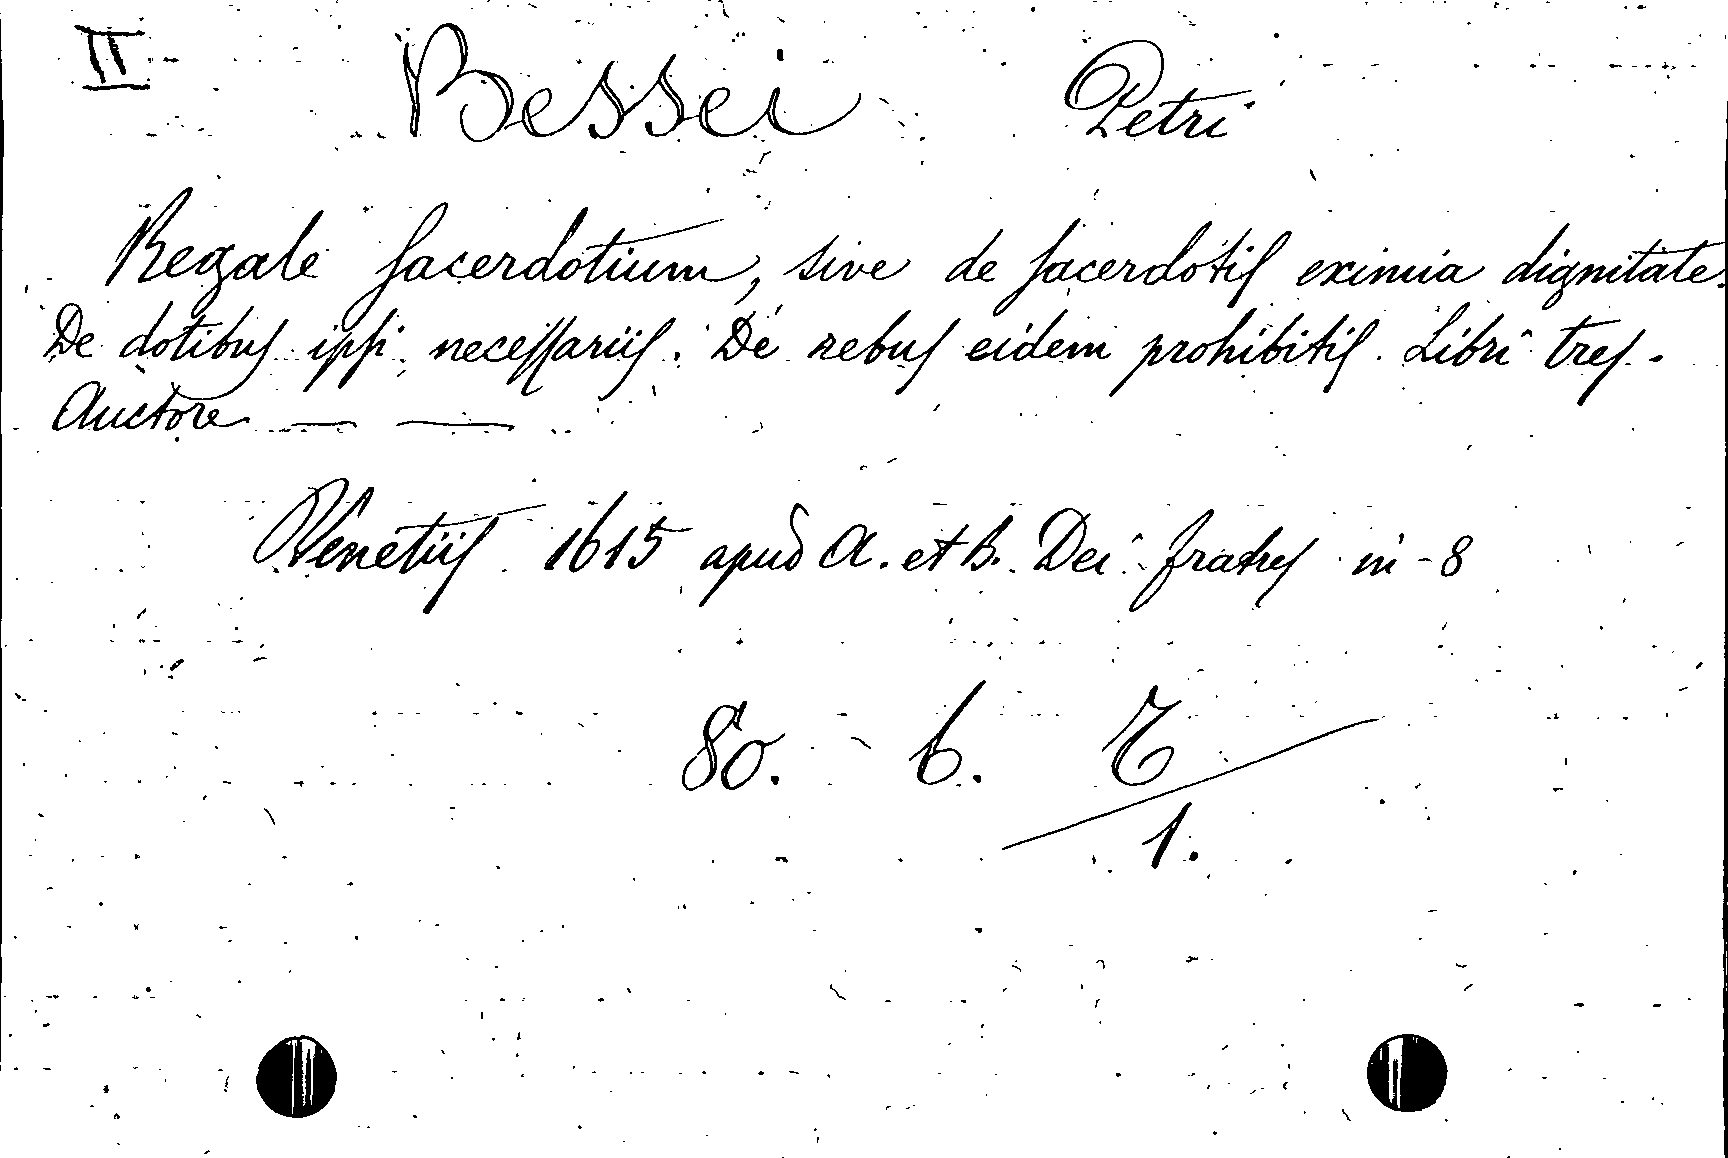 II Bessei Petri
Regale sacerdotium, sive de sacerdotis eximia dignitate.
De dotibus ipsi necessariis. De rebus eidem prohibitis. Libri tres.
Auctore — —
Venetiis 1615 apud A. et B. Dei fratres in-8
80. b. 
1.